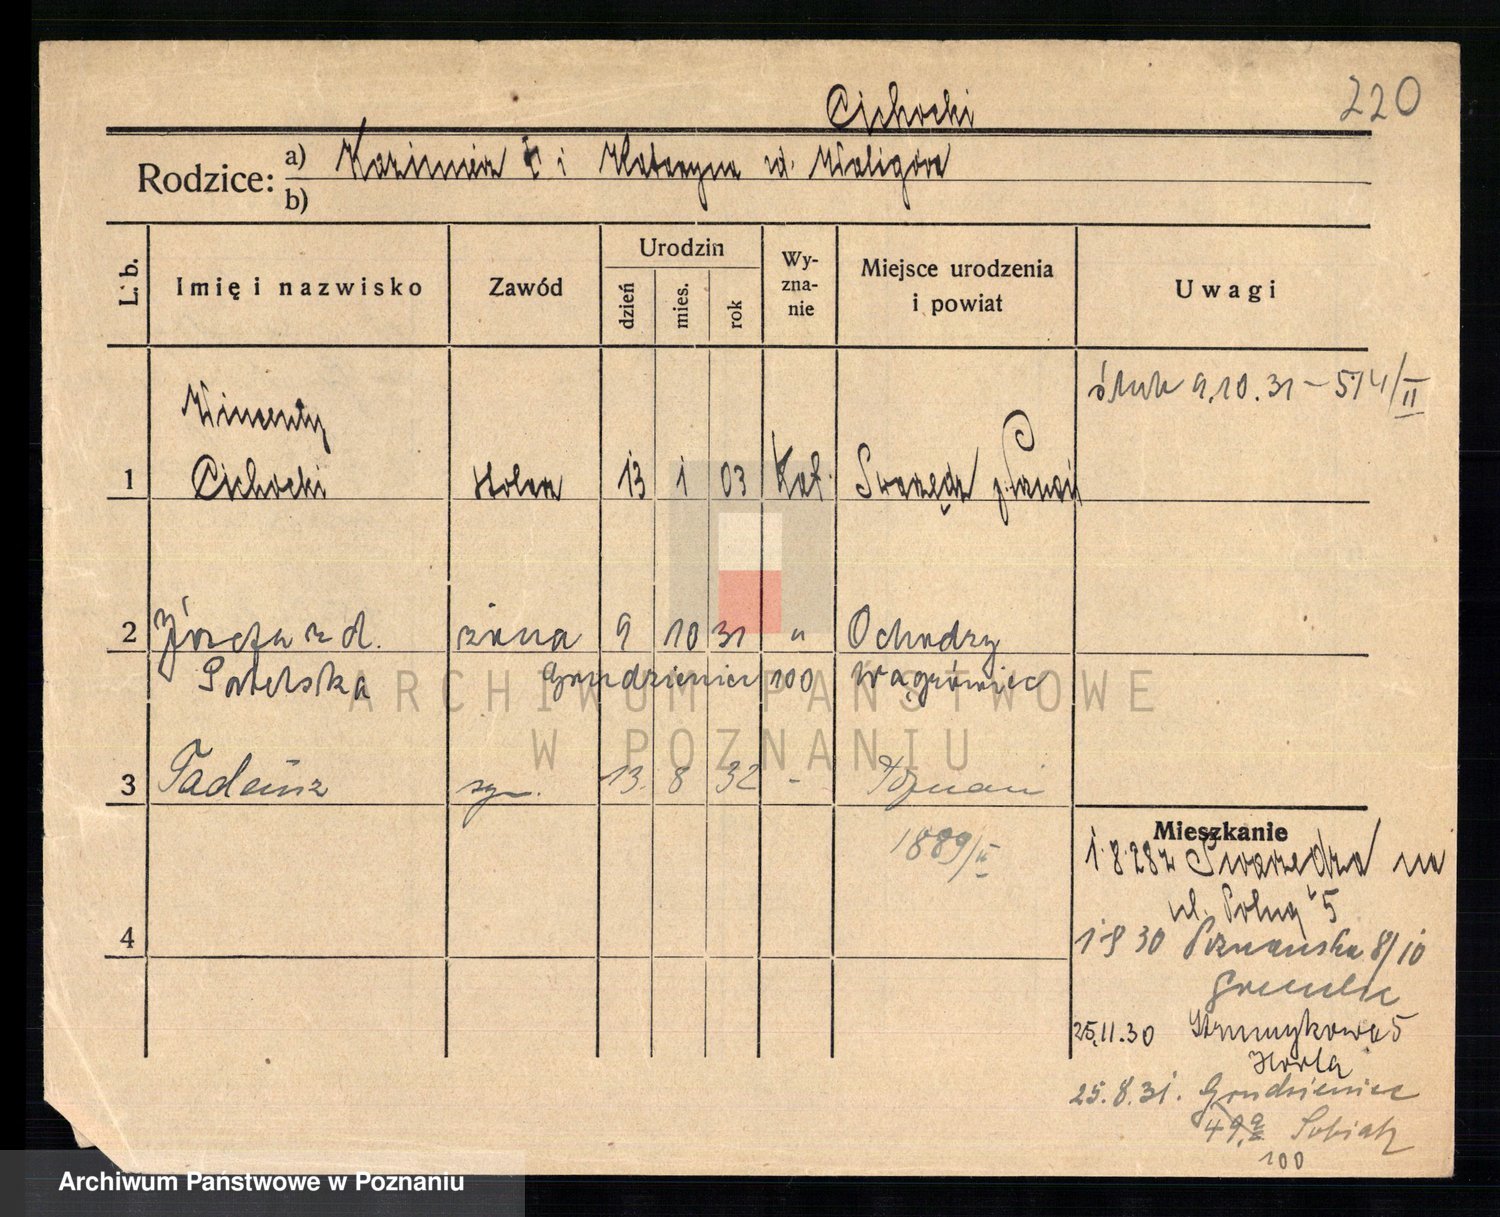 220
Cichocki
Rodzice: a) Kazimierz i Katarzyna
b)
L. b. Imię i nazwisko Zawód Urodzin dzień mies. rok Wyznanie Miejsce urodzenia i powiat Uwagi
ślub 9.10.31 – 574/II
Wincenty
1 Cichocki stolarz 13 1 03 Kat. Swarzędz p. Poznań
2 Józefa z d. żona 9 10 31 " Ochodzy
Grudzieniec 100 Wągrówiec
3 Tadeusz syn. 13. 8 32 - Poznań
1889/II
Mieszkanie
1.8.28 z Swarzędza na
ul. Polną 5
4
1 8 30 Poznańska 8/10
25.11.30 5
25.8.31. Grudzieniec
49.
100
ARCHIWUM PAŃSTWOWE
W POZNANIU
Archiwum Państwowe w Poznaniu